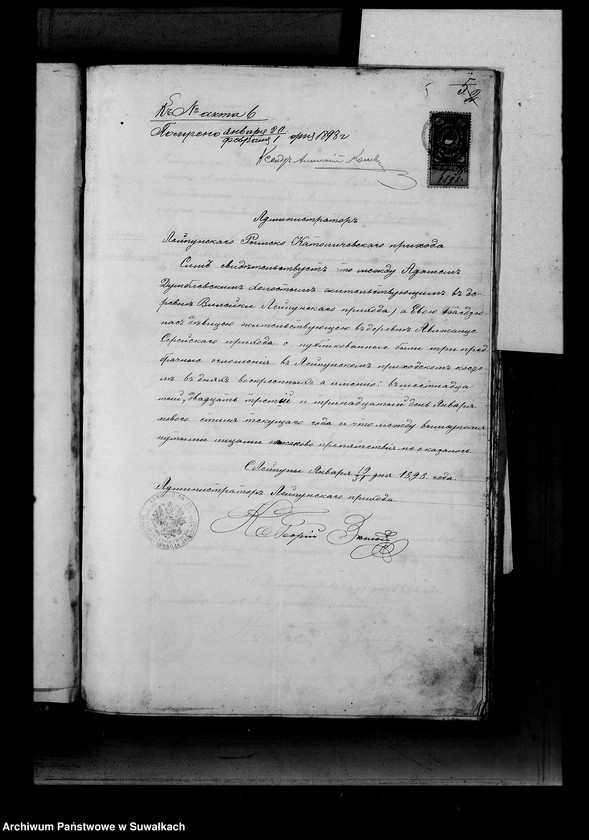 5 2
Къ № акта 6
Получено января 20 / февраля 1 дня 1893 г
Ксендзъ
Администраторъ
Лейпунского Римско Католическаго прихода
Симъ свидѣтельствуетъ что между Адамомъ
холостымъ жительствующимъ въ де-
ревни Лейпунского прихода, а Евою
дѣвицею жительствующею въ деревни
Серейского прихода опубликованные были три пред-
брачные оглашенія въ Лейпунскомъ приходскомъ косте-
лѣ въ дняхъ воскресенныхъ а именно: въ шестнадца-
тый, двадцать третій и тридцатый день Января
новаго стиля текущаго года и что между вышеупомя-
нутыми лицами никакого препятствія не оказалось.
С. Лейпуны Января 19/31 дня 1893 года
Администраторъ Лейпунского прихода
Кс Георгій
Archiwum Państwowe w Suwałkach